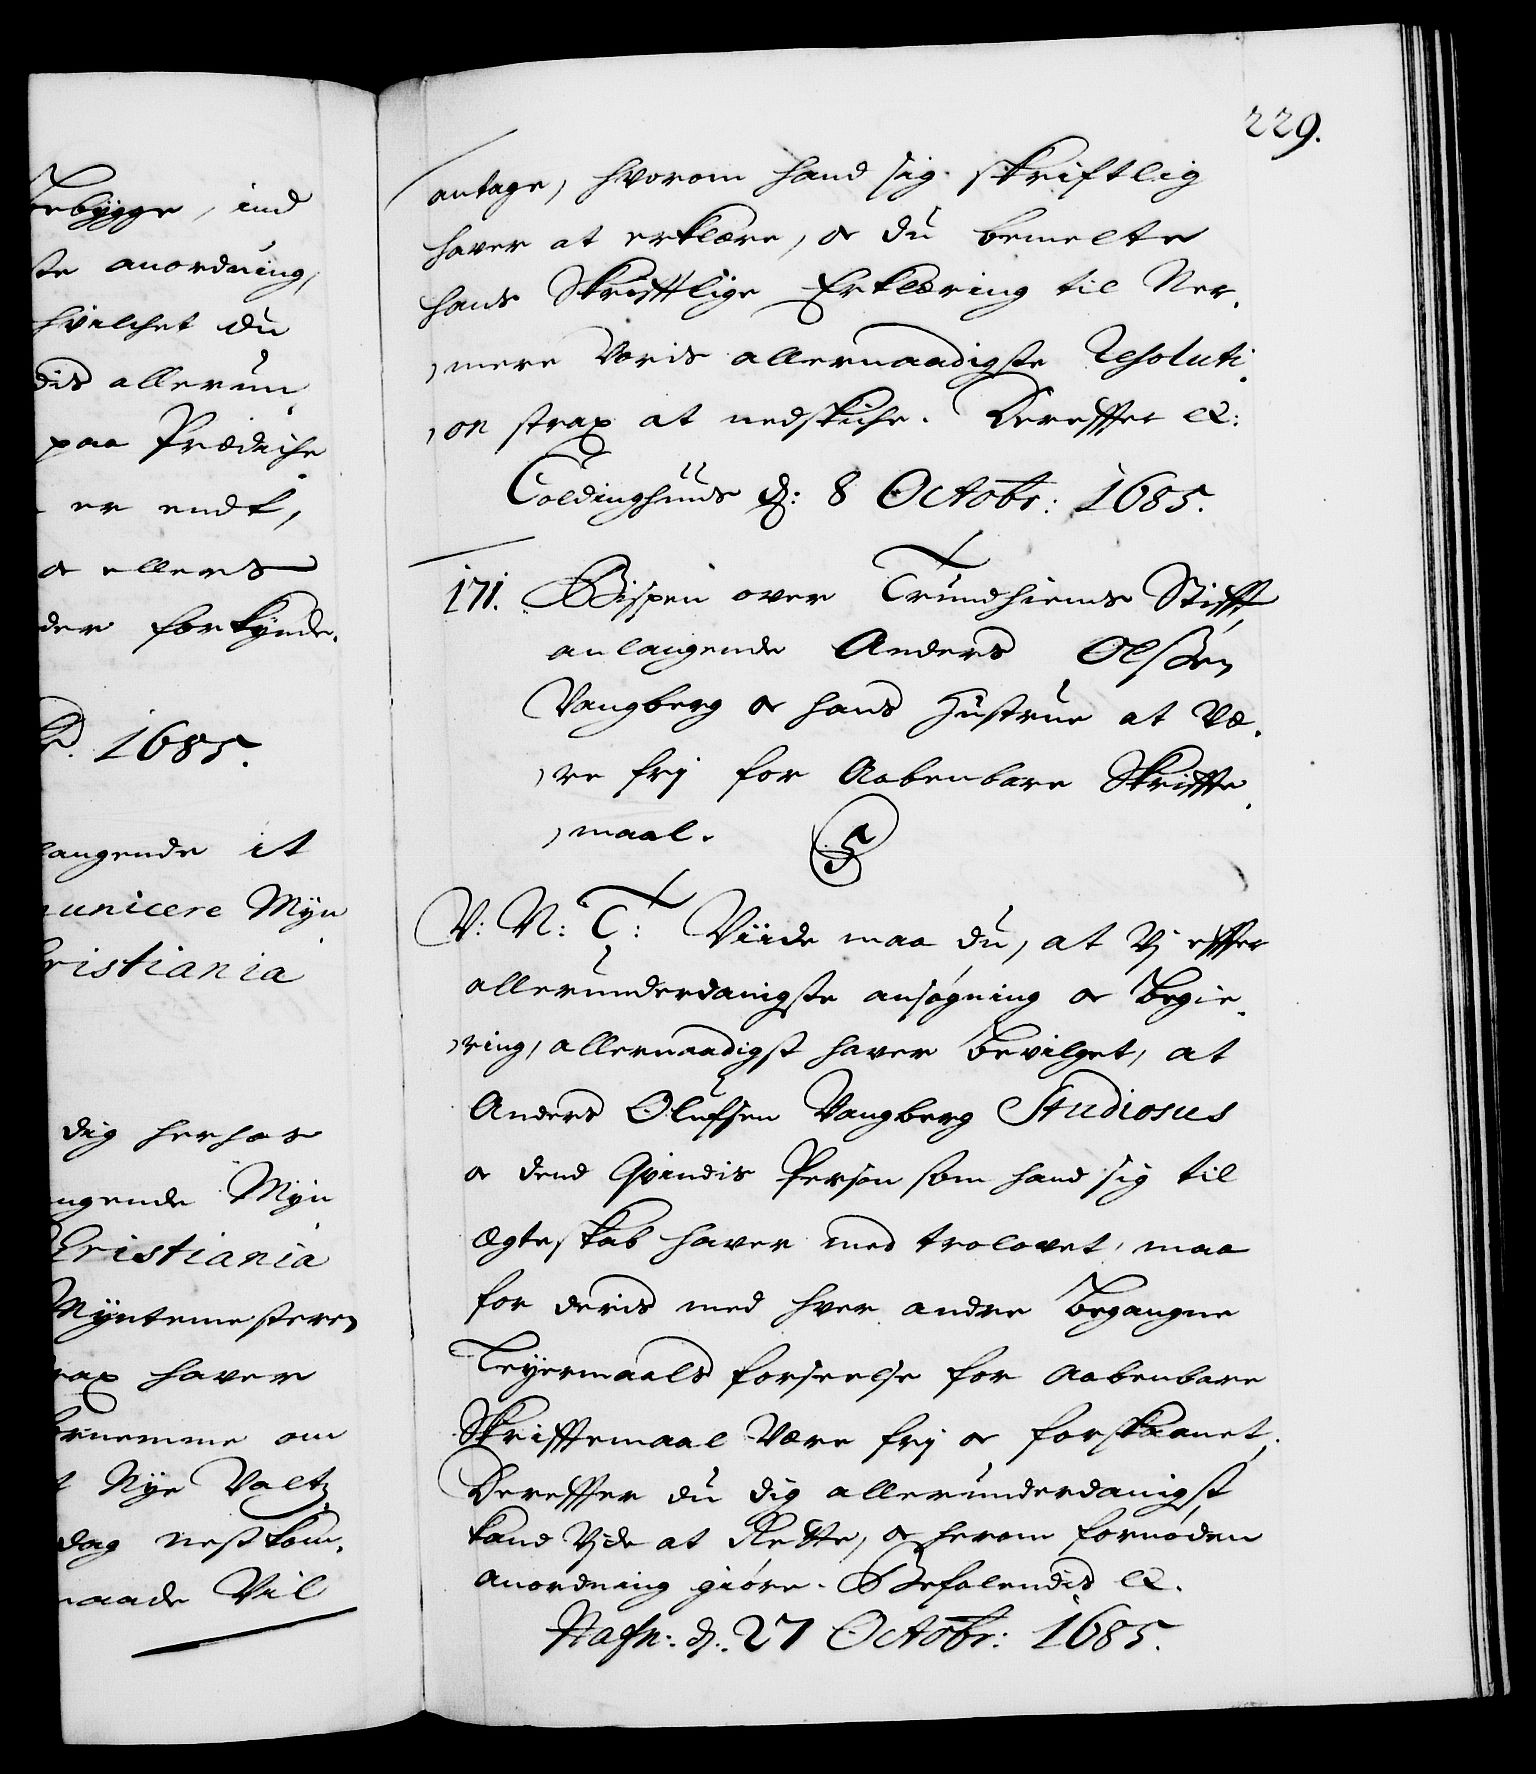 bebygge, ind
ste anordning,
hvilchet du
dis allerun
paa Prædiche
er endt,
og ellers
der forkynde.
1685.
langende it
municere Myn
Christiania
dig herhos
angende Myn
Christiania
Myntemesteren
strax haver
fornemme om
Nye Valtz
dag nestkom,
maade Vil
229.
antage, hvorom hand sig skriftlig
haver at erklære, og du bemelte
hans Skrifftlige Erklæring til Ner,
,mere Voris allernaadigste Resoluti,
,on strax at nedskiche. Dereffter &:
Coldinghuus d: 8 Octobr: 1685.
171. Bispen over Trundhiems Stifft,
anlangende Anders Olsßen
Vangberg og hans Hustrue at Væ,
,re frj for Aabenbare Skriffte,
,maal.
V: N: T: Viide maa du, at Vj effter
allerunderdanigste ansøgning og Begie,
,ring, allernaadigst haver Bevilget, at
Anders Olufsen Vangberg Studiosus
og dend Qvindis Person som hand sig til
Ægteskab haver med trolovet, maa
for deris med hver andre Begangne
Leyermaals forseelse for Aabenbare
Skrifftemaal Være frj og forskaanet,
Dereffter du dig allerunderdanigst
kand Vide at Rette, og herom fornøden
anordning giøre. Befalendis &.
Hafn: d: 27 Octobr: 1685.